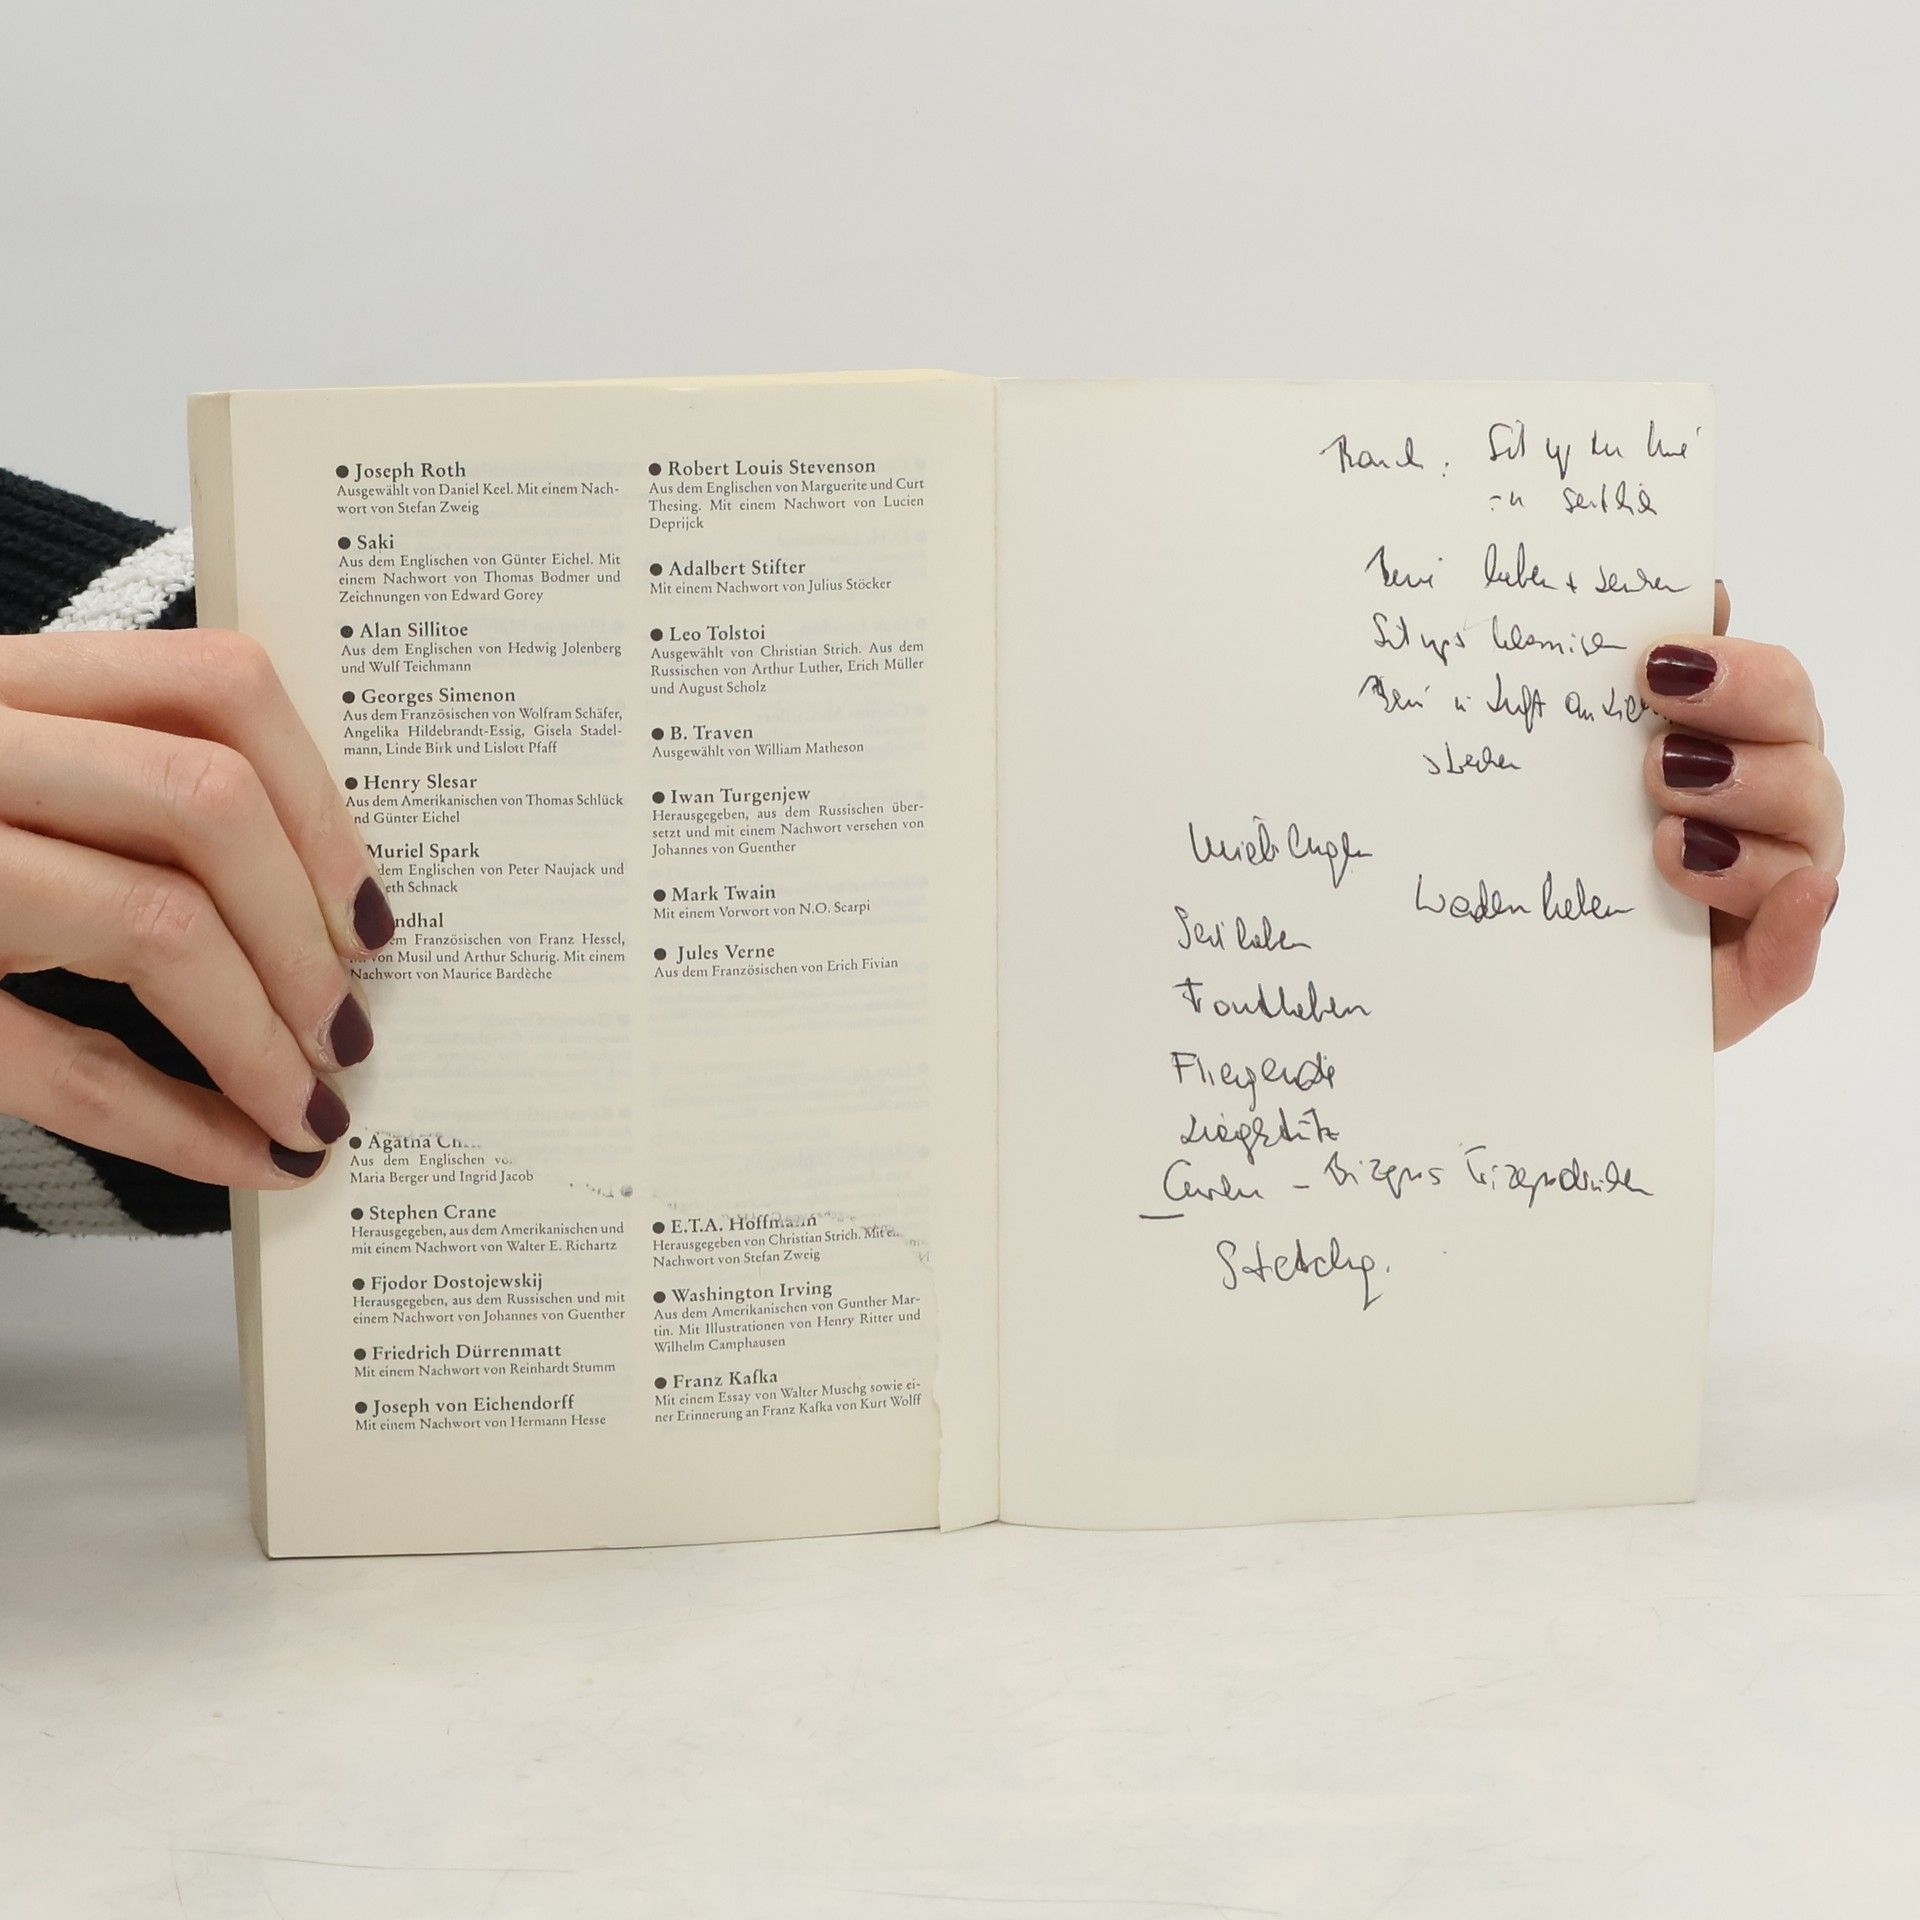 ● Joseph Roth
Ausgewählt von Daniel Keel. Mit einem Nach-
wort von Stefan Zweig
● Saki
Aus dem Englischen von Günter Eichel. Mit
einem Nachwort von Thomas Bodmer und
Zeichnungen von Edward Gorey
● Alan Sillitoe
Aus dem Englischen von Hedwig Jolenberg
und Wulf Teichmann
● Georges Simenon
Aus dem Französischen von Wolfram Schäfer,
Angelika Hildebrandt-Essig, Gisela Stadel-
mann, Linde Birk und Lislott Pfaff
● Henry Slesar
Aus dem Amerikanischen von Thomas Schlück
nd Günter Eichel
Muriel Spark
dem Englischen von Peter Naujack und
eth Schnack
ndhal
em Französischen von Franz Hessel,
von Musil und Arthur Schurig. Mit einem
Nachwort von Maurice Bardèche
● Agatha
Aus dem Englischen
Maria Berger und Ingrid Jacob
● Stephen Crane
Herausgegeben, aus dem Amerikanischen und
mit einem Nachwort von Walter E. Richartz
● Fjodor Dostojewskij
Herausgegeben, aus dem Russischen und mit
einem Nachwort von Johannes von Guenther
● Friedrich Dürrenmatt
Mit einem Nachwort von Reinhardt Stumm
● Joseph von Eichendorff
Mit einem Nachwort von Hermann Hesse
● Robert Louis Stevenson
Aus dem Englischen von Marguerite und Curt
Thesing. Mit einem Nachwort von Lucien
Deprijck
● Adalbert Stifter
Mit einem Nachwort von Julius Stöcker
● Leo Tolstoi
Ausgewählt von Christian Strich. Aus dem
Russischen von Arthur Luther, Erich Müller
und August Scholz
● B. Traven
Ausgewählt von William Matheson
● Iwan Turgenjew
Herausgegeben, aus dem Russischen über-
setzt und mit einem Nachwort versehen von
Johannes von Guenther
● Mark Twain
Mit einem Vorwort von N.O. Scarpi
● Jules Verne
Aus dem Französischen von Erich Fivian
● E.T.A. Hoffmann
Herausgegeben von Christian Strich. Mit
Nachwort von Stefan Zweig
● Washington Irving
Aus dem Amerikanischen von Gunther Mar-
tin. Mit Illustrationen von Henry Ritter und
Wilhelm Camphausen
● Franz Kafka
Mit einem Essay von Walter Muschg sowie ei-
ner Erinnerung an Franz Kafka von Kurt Wolff
Bauch: Sit up
seitlich
Bein heben + senken
Sit ups klassisch
Bein in Luft
strecken
Waden heben
Seitheben
Frontheben
Fliegende
Liegestütz
Bizeps Trizepsdrücken